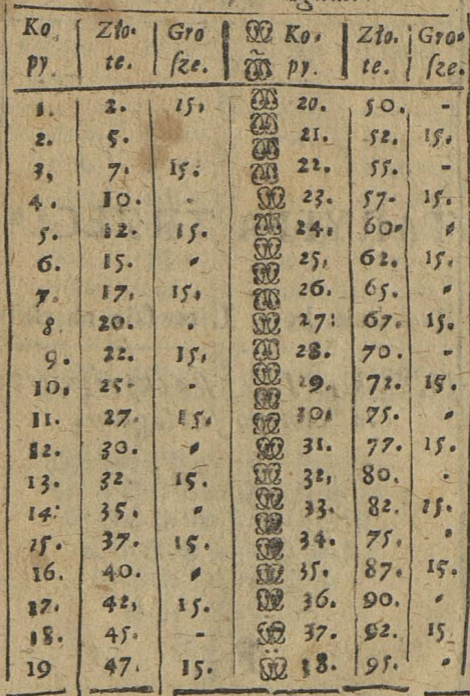 Ko- Zło- Gro Ko- Zło- Gro-
py. te. ſze. py. te. ſze.
1. 2. 15. 20. 50. -
2. 5. 21. 52. 15.
3, 7. 15. 22. 55. -
4. 10. . 23. 57. 15.
5. 12. 15. 24. 60. .
6. 15. . 25, 62. 15.
7. 17, 15, 26. 65. .
8 20. . 27: 67. 15.
9. 22. 15, 28. 70. -
10, 25- - 29. 72. 15.
11. 27. 15. 30. 75. .
12. 30. . 31. 77. 15.
13. 32 15. 32, 80. .
14: 35. . 33. 82. 15.
15. 37. 15. 34. 75, .
16. 40. . 35. 87. 15.
17. 42, 15. 36. 90. .
18. 45. - 37. 92. 15
19 47. 15. 38. 95. .